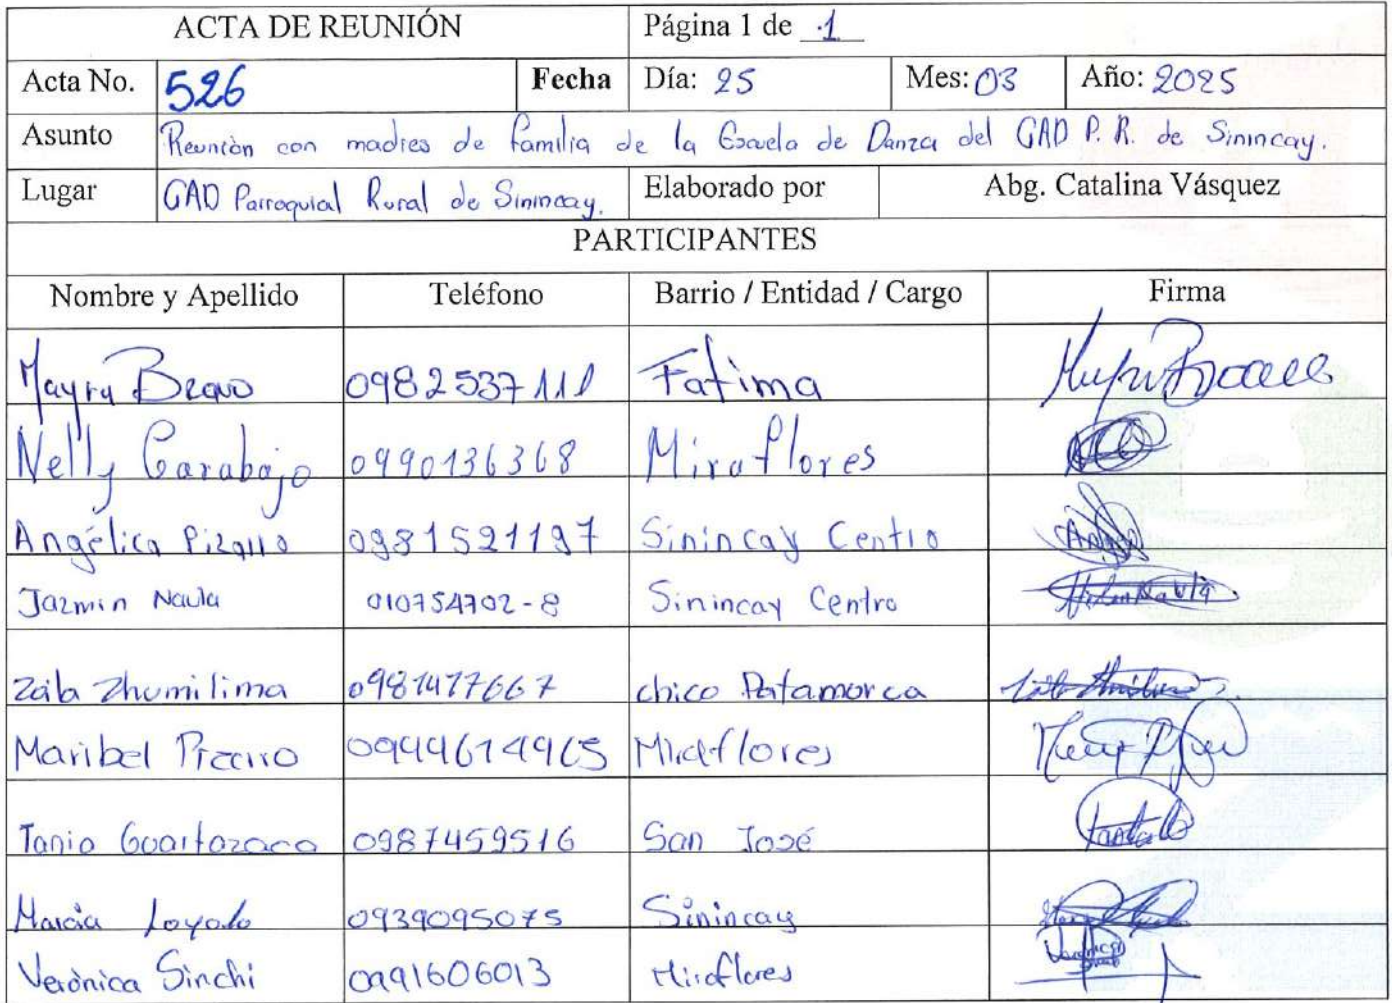 ACTA DE REUNIÓN Página 1 de 1
Acta No. 526 Fecha Día: 25 Mes: 03 Año: 2025
Asunto Reunión con madres de familia de la Escuela de Danza del GAD P. R. de Sinincay.
Lugar GAD Parroquial Rural de Sinincay. Elaborado por Abg. Catalina Vásquez
PARTICIPANTES
Nombre y Apellido Teléfono Barrio / Entidad / Cargo Firma
Mayra Bravo 0982537111 Fatima
Nelly Carabajo 0990136368 Miraflores
Angélica Pizarro 0981521197 Sinincay Centro
Jazmin Naula 010754702-8 Sinincay Centro
Zoila Zhumilima 0981477667 chico Patamarca
Maribel Pizarro Miraflores
Tania Guartazaca 0987459516 San José
Marcia Loyola 0939095075 Sinincay
Verónica Sinchi 0991606013 Miraflores